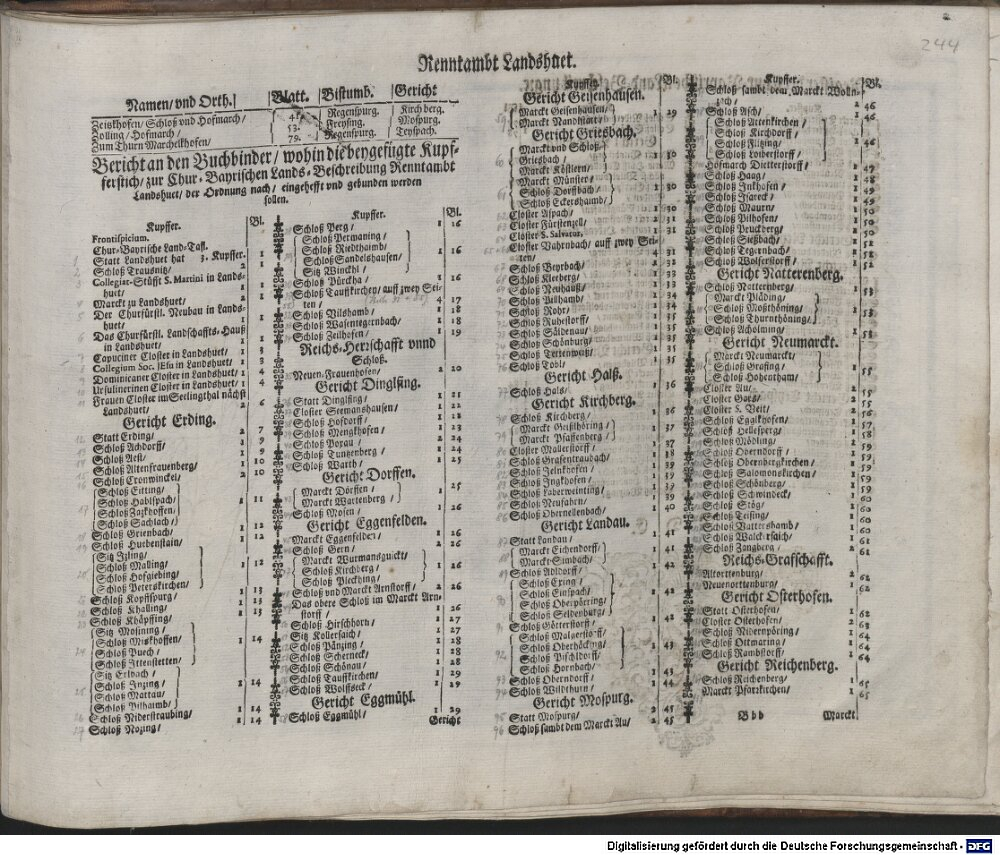 244
Renntambt Landshuet.
Namen/ vnd Orth. Blatt. Bistumb. Gericht
Zeislkhofen/ Schloß vnd Hofmarch/ Regenspurg. Kirchberg.
Zolling/ Hofmarch/ 53. Freysing. Mospurg.
Zum Thurn Marchelkhofen/ 79. Regenspurg. Teyspach.
Bericht an den Buchbinder/ wohin die beygefügte Kupf-
ferstich/ zur Chur-Bayrischen Lands-Beschreibung Renntambt
Landshuet/ der Ordnung nach/ eingehefft vnd gebunden werden
sollen.
Kupffer. Bl.
Frontispicium.
Chur-Bayrische Land-Tafl.
Statt Landshuet hat 3. Kupffer. 1
Schloß Trausnitz/ 2 1
Collegiar-Stüfft S. Martini in Lands-
huet/ 1 1
Marckt zu Landshuet/ 2 1
Der Churfürstl. Neubau in Lands-
huet/ 1
Das Churfürstl. Landschaffts-Hauß
in Landshuet/ 1 1
Capuciner Closter in Landshuet/ 1 3
Collegium Soc. JEsu in Landshuet/ 1 3
Dominicaner Closter in Landshuet/ 1 4
Ursulinerinen Closter in Landshuet/ 1 4
Frauen Closter im Seelingthal nächst
Landshuet/ 2 6
Gericht Erding.
Statt Erding/ 2 7
Schloß Achdorff/ 1 9
Schloß Aest/ 1 10
Schloß Altenfrauenberg/ 2 10
Schloß Cronwinckel/
Schloß Eitting/
Schloß Hablspach/ 1 11
Schloß Zagkhoffen/
Schloß Sachlach/
Schloß Grienbach/ 1 12
Schloß Hubenstain/ 1 12
Sitz Itzling/
Schloß Malling/ 1 12
Schloß Hofgiebing/
Schloß Peterskirchen/
Schloß Kopffspurg/ 1 13
Schloß Khalling/ 1 13
Schloß Khöpffing/ 1 13
Sitz Mosining/
Schloß Mitkhoffen/ 1 14
Schloß Puech/
Schloß Ittenstetten/
Sitz Erlbach/
Schloß Inzing/ 1 14
Schloß Mattau/
Schloß Pilhaimb/
Schloß Niderstraubing/ 1 14
Schloß Nozing/ 1 14
Kupffer. Bl.
Schloß Perg/ 1 16
Schloß Permaning/
Schloß Riebhaimb/ 1 16
Schloß Sandelshausen/
Sitz Winckl/
Schloß Pürckha/ 1 16
Schloß Tauffkirchen/ auff zwey Sei-
ten/ 4 17
Schloß Vilshamb/ 1 18
Schloß Wasentegernbach/ 1 18
Schloß Zeilhofen/ 1 19
Reichs-Herrschafft vnnd
Schloß.
Neuen-Frauenhofen/ 2 20
Gericht Dinglfing.
Statt Dinglfing/ 1 21
Closter Seemanshausen/ 1 22
Schloß Hofdorff/ 1 18
Schloß Mengkhofen/ 1 23
Schloß Porau/ 2 24
Schloß Tunzenberg/ 1 24
Schloß Warth/ 1 25
Gericht Dorffen.
Marckt Dorffen/ 1 25
Marckt Wartenberg/
Schloß Mosen/ 1 26
Gericht Eggenfelden.
Marckt Eggenfelden/ 1 26
Schloß Gern/ 2 26
Marckt Wurmansquickt/
Schloß Hirchberg/ 1 26
Schloß Pleching/
Schloß vnd Marckt Arnstorff/ 2 26
Das obere Schloß im Marckt Arn-
storff/ 1 26
Schloß Hirschhorn/ 1 27
Sitz Kollersaich/ 1 27
Schloß Pänzing/ 1 28
Schloß Scherneck/ 1 28
Schloß Schönau/ 1 28
Schloß Tauffkirchen/ 1 29
Schloß Wolffseck/ 1 29
Gericht Eggmühl.
Schloß Eggmühl/ 1 29
Gericht
Kupffer. Bl.
Gericht Geisenhausen.
Marckt Geisenhausen/ 1 29
Marckt Nandlstatt/
Gericht Griesbach.
Marckt vnd Schloß
Griesbach/ 1 30
Marckt Köstlern/
Marckt Münster/
Schloß Dorffbach/ 1 30
Schloß Eckershaimb/
Closter Aspach/ 1 30
Closter Fürstenzell/ 2 31
Closter S. Salvator.
Closter Vahrnbach/ auff zwey Sei-
ten/ 4 31
Schloß Beyrbach/ 2 32
Schloß Klerberg/ 1 33
Schloß Neuhauß/ 1 33
Schloß Pillhamb/ 1 34
Schloß Rohr/ 1 34
Schloß Ruhestorff/
Schloß Säldenau/ 1 35
Schloß Schönburg/ 1 35
Schloß Tettenweiß/ 1 35
Schloß Tobl/
Gericht Halß.
Schloß Hals/ 1 36
Gericht Kirchberg.
Schloß Kirchberg/ 1 36
Marckt Geißlhöring/ 1 37
Marckt Pfaffenberg/
Closter Mallerstorff/ 1 37
Schloß Grafentraubach/ 1 38
Schloß Heinkhofen/ 1 38
Schloß Inghofen/ 1 39
Schloß Laberweinting/ 1 39
Schloß Neufahrn/ 1 39
Schloß Oberneilenbach/ 1 40
Gericht Landau.
Statt Landau/ 1 41
Marckt Eichendorff/ 1 41
Marckt Simbach/
Schloß Adldorff/ 1 42
Schloß Ering/
Schloß Einspach/ 1 42
Schloß Oberpöring/
Schloß Seldenburg/
Schloß Götterstorff/ 1 42
Schloß Malgerstorff/
Schloß Oberhäcking/ 1 43
Schloß Pischldorff/
Schloß Hornbach/
Schloß Oberndorff/ 1 43
Schloß Wildthurn/ 1 44
Gericht Mospurg.
Statt Mospurg/ 2 45
Schloß sambt dem Marckt Au/ 2 45
Kupffer. Bl.
Schloß sambt dem Marckt Wolln-
zach/ 2 46
Schloß Asch/ 1 46
Schloß Attenkirchen/
Schloß Kirchdorff/ 1 46
Schloß Flitzing/
Schloß Loiberstorff/
Hofmarch Dietterstorff/ 1 47
Schloß Haag/ 1 48
Schloß Inkhofen/ 1 49
Schloß Isareck/ 1 50
Schloß Maurn/ 1 50
Schloß Pilhofen/ 1 50
Schloß Pruckberg/ 1 51
Schloß Sießbach/ 1 51
Schloß Tegernbach/ 1 51
Schloß Wolferstorff/ 1 52
Gericht Natterenberg.
Schloß Natternberg/ 1 53
Marckt Plädling/
Schloß Moßthöning/ 1 53
Schloß Thurnthöning/
Schloß Acholming/ 1 53
Gericht Neumarckt.
Marckt Neumarckt/
Schloß Grafing/ 1 55
Schloß Hohentham/
Closter Au/ 2 55
Closter Gars/ 2 55
Closter S. Veit/ 1 56
Schloß Egglkhofen/ 1 57
Schloß Hellesperg/ 1 58
Schloß Mödling/ 2 58
Schloß Oberndorff/ 1 59
Schloß Obernbergkirchen/ 1 59
Schloß Salomonskirchen/ 1 59
Schloß Schönberg/ 1 59
Schloß Schwindeck/ 1 60
Schloß Stög/ 1 60
Schloß Teising/ 1 60
Schloß Vattershamb/ 1 60
Schloß Walckersaich/ 1 61
Schloß Zangberg/ 2 61
Reichs-Grafschafft.
Altorttenburg/ 2 62
Neuenorttenburg/ 1 62
Gericht Osterhofen.
Statt Osterhofen/ 1 62
Closter Osterhofen/ 2 63
Schloß Nidernpöring/ 1 64
Schloß Ottmaring/ 1 64
Schloß Ramstorff/ 1 64
Gericht Reichenberg.
Schloß Reichenberg/ 1 65
Marckt Pfarrkirchen/ 1 65
Bbb Marckt
Digitalisierung gefördert durch die Deutsche Forschungsgemeinschaft - DFG